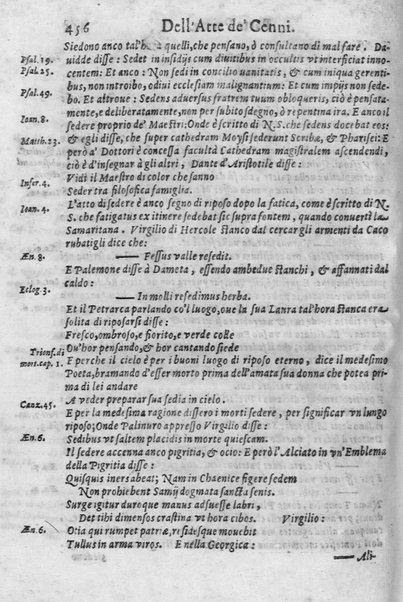 456 Dell'Arte de' Cenni.
Siedono anco tal'hora quelli, che pensano, ò consultano di mal fare. Da-
Psal. 19. uidde disse: Sedet in insidijs cum diuitibus in occultis vt interficiat inno-
Psal. 25. centem: Et anco: Non sedi in concilio uanitatis, & cum iniqua gerenti-
bus, non introibo, odiui ecclesiam malignantum: Et cum impijs non sede-
Psal. 49. bo. Et altroue: Sedens aduersus fratrem tuum obloqueris, ciò è pensata-
mente, e deliberatamente, non per subito sdegno, ò repentina ira. E anco il
Ioan. 8. sedere proprio de' Maestri: Onde è scritto di N.S. che sedens docebat eos:
Matth. 23. & egli disse, che super cathedram Moysi sederunt Scribæ, & Pharisei: E
però a' Dottori è concessa facultà Cathedram magistralem ascendendi,
ciò è d'insegnar à gli altri, Dante d'Aristotile disse:
Infer. 4. Vidi il Maestro di color che sanno
Seder tra filosofica famiglia.
Ioan. 4. L'atto di sedere è anco segno di riposo dopo la fatica, come è scritto di N.
S. che fatigatus ex itinere sedebat sic supra fontem, quando conuertì la
Samaritana. Virgilio di Hercole stanco dal cercar gli armenti da Caco
rubatigli dice che:
Æn. 8. —— Fessus valle resedit.
E Palemone disse à Dameta, essendo ambedue stanchi, & affannati dal
caldo:
Eclog. 3. —— In molli resedimus herba.
Et il Petrarca parlando co'l luogo, oue la sua Laura tal'hora stanca era
solita di riposarsi disse:
Fresco, ombroso, e fiorito, e verde colle
Ou'hor pensando, & hor cantando siede
Trionf. di E perche il cielo è per i buoni luogo di riposo eterno, dice il medesimo
mort. cap. 1. Poeta, bramando d'esser morto prima dell'amata sua donna che potea pri-
ma di lei andare
Canz. 45. A veder preparar sua sedia in cielo.
E per la medesima ragione dissero i morti sedere, per significar vn lungo
riposo; Onde Palinuro appresso Virgilio disse:
Æn. 6. Sedibus vt saltem placidis in morte quiescam.
Il sedere accenna anco pigritia, & otio: E però l'Alciato in vn'Emblema
della Pigritia disse:
Quisquis iners abeat; Nam in Chœnice figere sedem
Non prohibent Samij dogmata sancta senis.
Surge igitur duroque manus adsuesce labri,
Det tibi dimensos crastina vt hora cibos. Virgilio:
Æn. 6. Otia qui rumpet patriæ, residesque mouebit
Tullus in arma viros. E nella Georgica:
—— Ali-